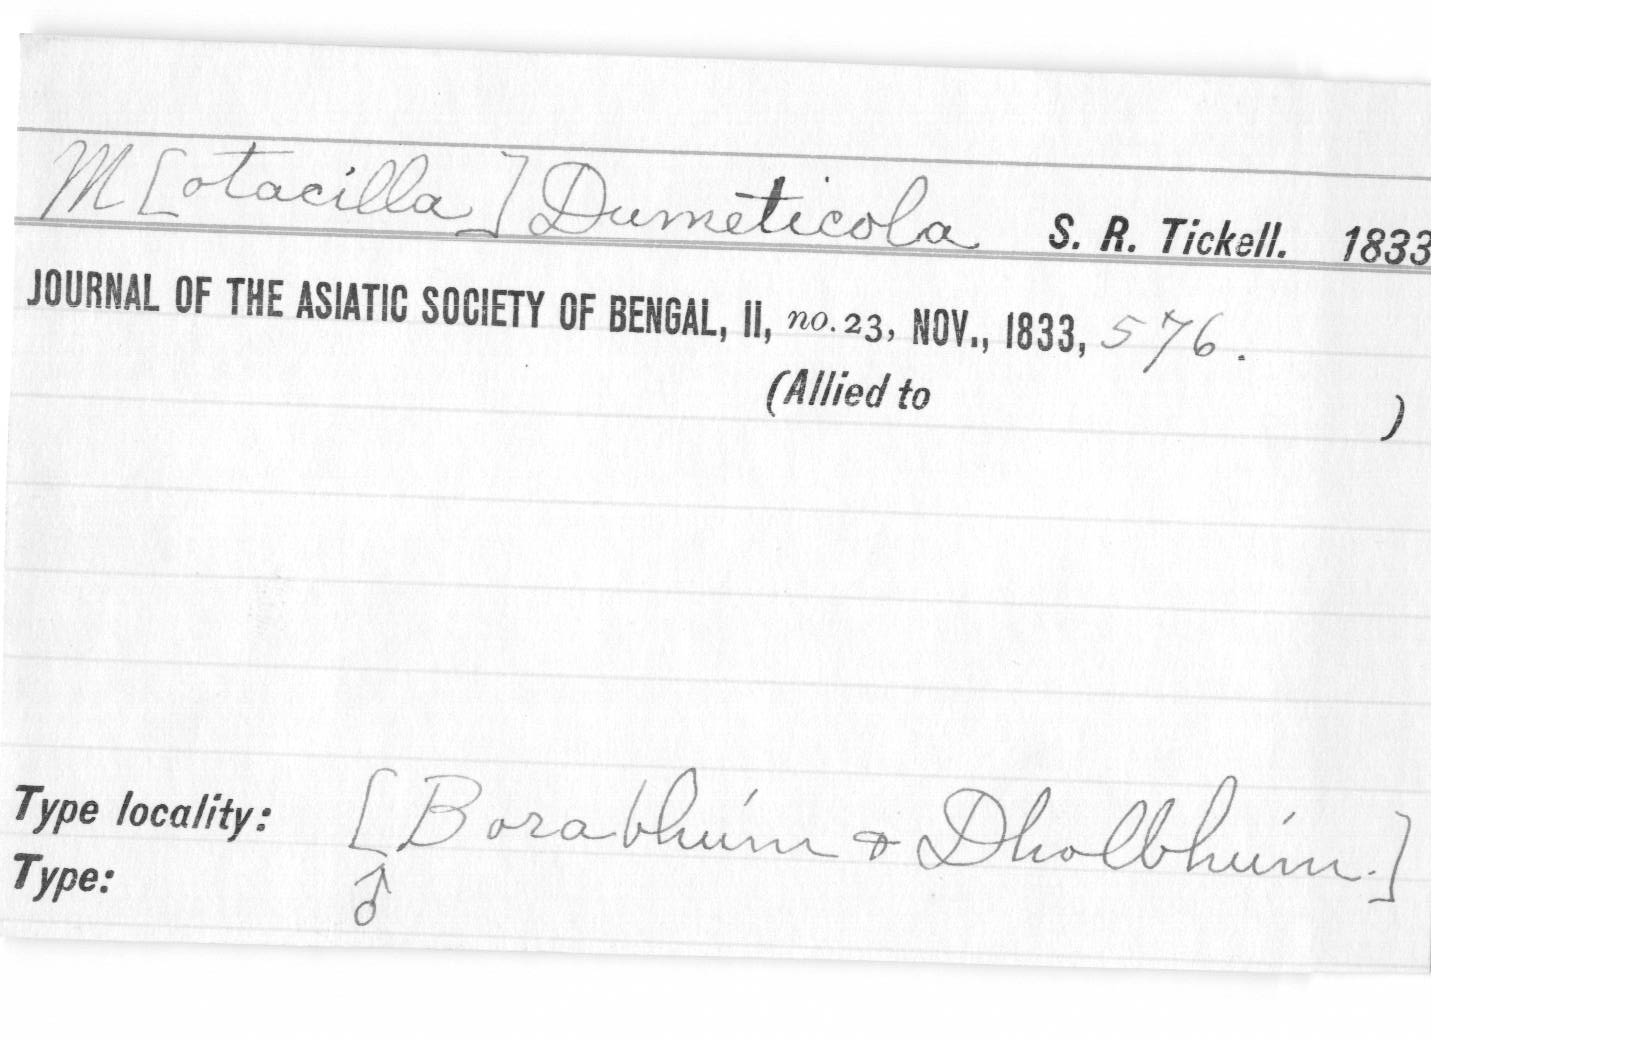 M[otacilla] Dumeticola S. R. Tickell. 1833
JOURNAL OF THE ASIATIC SOCIETY OF BENGAL, II, no. 23, NOV., 1833, 576.
(Allied to )
Type locality: [Borabhúm & Dholbhúm.]
Type: ♂